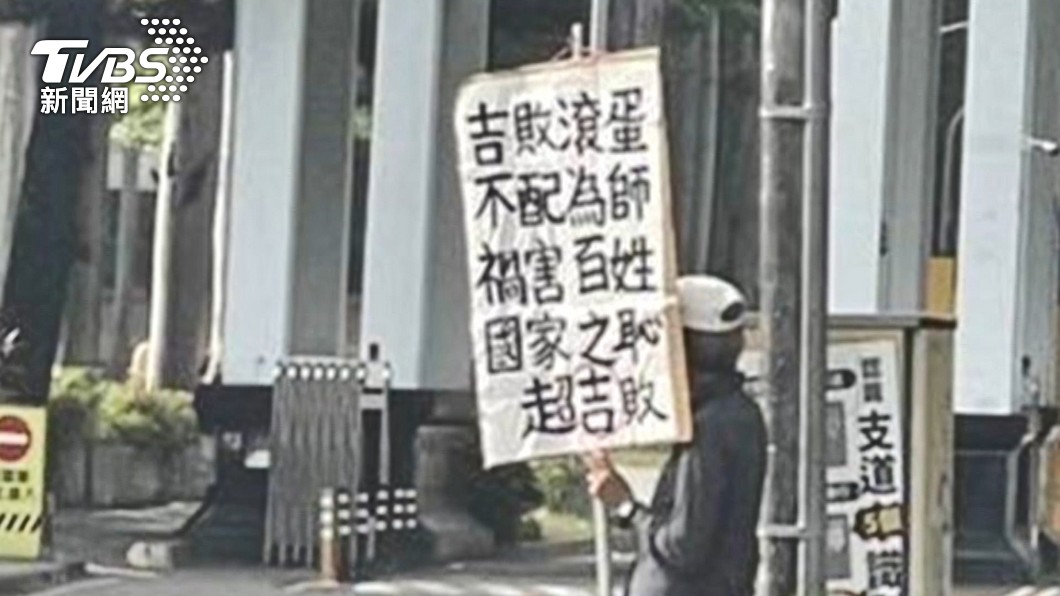 TVBS
新聞網
吉敗滾蛋
不配為師
禍害百姓
國家之恥
超吉敗
支道